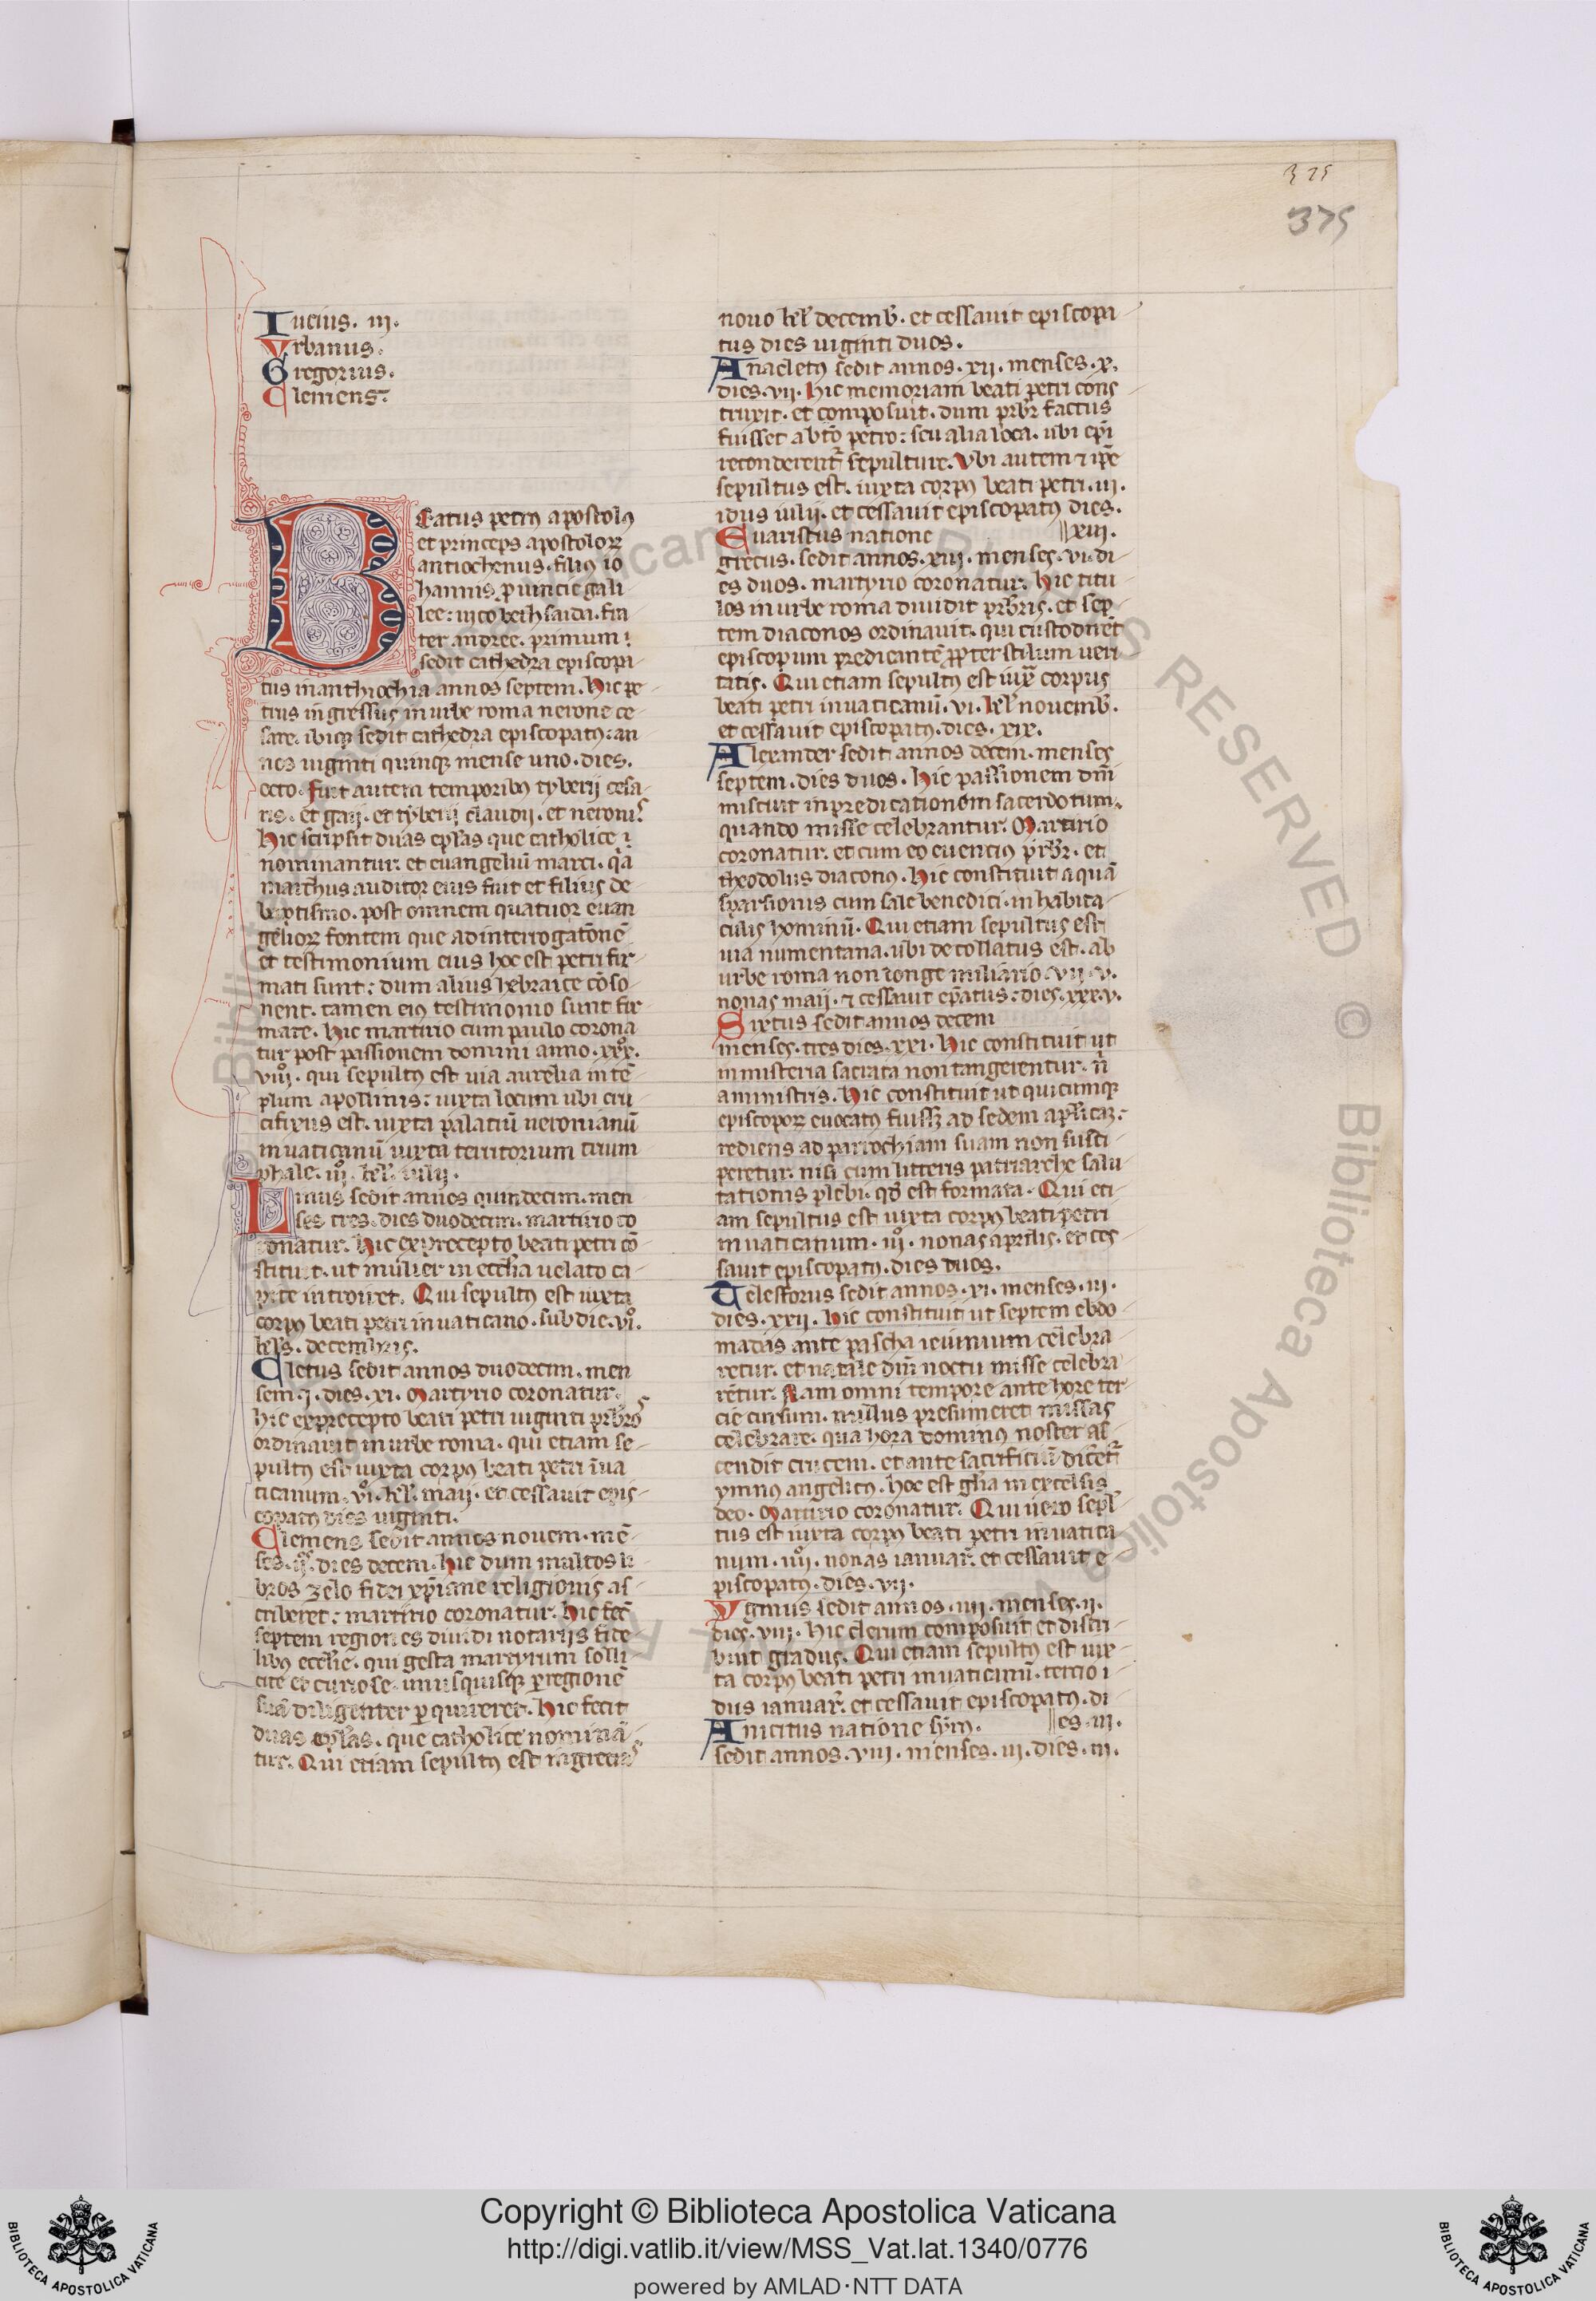 325
375
Lucius. iii.
Urbanus.
Gregorius.
Clemens.
Beatus petrus apostolus
et princeps apostolorum
antiochenus. filius io
hannis. provincie gali
lee: vico bethsaida. fra
ter andree. primum
sedit cathedra episcopa-
tus in anthiochia annos septem. Hic pe-
trus ingressus in urbe roma nerone ce-
sare. ibique sedit cathedra episcopatus: an-
nos viginti quinque mense uno. dies.
octo. Fuit autem temporibus tyberij cesa-
ris. et gaij. et tyberij claudij. et neronis.
Hic scripsit duas epłas que catholice
nominantur. et evangeliū marci. qa
marchus auditor eius fuit et filius de
baptismo. post omnem quatuor evan
geliorum fontem que ad interrogatōnē
et testimonium eius hoc est petri fir-
mati sunt: dum alius hebraice cōso-
nent. tamen eius testimonio sunt fir
mate. Hic martirio cum paulo corona
tur post passionem domini anno. xxx.
viii. qui sepultus est via aurelia in tē-
plum apollinis: iuxta locum ubi cru
cifixus est. iuxta palatiū neronianū
in vaticanū iuxta territorium trium
phale. iii. kł. iulij.
Linus sedit annos quindecim. men
ses tres. dies duodecim. martirio co
ronatur. Hic ex precepto beati petri cō-
stituit. ut mulier in ecctia velato ca-
pite introiret. Qui sepultus est iuxta
corpus beati petri in vaticano. sub die. vi.
kłs. decembris.
Cletus sedit annos duodecim. men
sem. i. dies. xi. Martyrio coronatur.
hic ex precepto beati petri viginti prbros
ordinavit in urbe roma. qui etiam se-
pultus est iuxta corpus beati petri ī va
ticanum. vi. kł. maij. et cessavit epis-
copatus dies viginti.
Clemens sedit annos novem. mē-
ses. ii. dies decem. Hic dum multos li-
bros zelo fidei xpiane religionis as-
criberet: martirio coronatur. Hic fec
septem regiones dividi notarijs fide-
libus ecctie. qui gesta martyrum solli-
cite et curiose. unusquisque per regionē
suā diligenter perquireret. Hic fecit
duas epłas. que catholice nominā-
tur. Qui etiam sepultus est in grecias
novo kł decemb. et cessavit episcopa
tus dies viginti duos.
Anacletus sedit annos. xii. menses. x.
dies. vii. Hic memoriam beati petri cons
truxit. et composuit. dum prbr factus
fuisset a bto petro: seu alia loca. ubi epi
reconderentur sepulture. Ubi autem et ipe
sepultus est. iuxta corpus beati petri. iii.
idus iulij. et cessavit episcopatus dies.
Evaristus natione xiii.
grecus. sedit annos. xiii. menses. vi. di-
es duos. martyrio coronatur. Hic titu
los in urbe roma dividit prbris. et sep-
tem diaconos ordinavit. qui custodirēt
episcopum predicantē propter stilum veri
tatis. Qui etiam sepultus est iuxta corpus
beati petri in vaticanū. vi. kł novemb.
et cessavit episcopatus. dies. xix.
Alexander sedit annos decem. menses
septem. dies duos. Hic passionem dni
miscuit in predicationem sacerdotum.
quando misse celebrantur. Martirio
coronatur. et cum eo evencius prbr. et
theodolus diaconus. Hic constituit aquā
sparsionis cum sale benedici. in habita-
culis hominū. Qui etiam sepultus est
via numentana. ubi decollatus est. ab
urbe roma non longe miliario. vii. v.
nonas maij. et cessavit epatus: dies. xxxv.
Sixtus sedit annos decem
menses. tres dies. xxi. Hic constituit ut
ministeria sacrata non tangerentur. n
a ministris. Hic constituit ut quicumque
episcoporum evocatus fuisset ad sedem aplicam:
rediens ad parrochiam suam non susci-
peretur. nisi cum litteris patriarche salu
tationis plebi. qd est formata. Qui eti-
am sepultus est iuxta corpus beati petri
in vaticanum. iii. nonas aprilis. et ces-
savit episcopatus. dies duos.
Telesforus sedit annos. xi. menses. iii.
dies. xxii. Hic constituit ut septem ebdo-
madas ante pascha ieiunium celebra-
retur. et natale dni noctu misse celebra
rētur. Nam omni tempore ante hore ter-
cie cursum. nullus presumeret missas
celebrare. qua hora dominus noster as-
cendit crucem. et ante sacrificiū dicetur
ymnus angelicus. hoc est gtia in excelsis
deo. Martirio coronatur. Qui vero sepl-
tus est iuxta corpus beati petri in vatica
num. iiii. nonas ianuar. et cessavit e-
piscopatus. dies. vii.
Yginus sedit annos. iiii. menses. ii.
dies. viii. Hic clerum composuit et distri-
buit gradus. Qui etiam sepultus est iux-
ta corpus beati petri in vaticanū. tercio i-
dus ianuar. et cessavit episcopatus. di
Anicitus natione syrus. es. iii.
sedit annos. viii. menses. iii. dies. iii.
Biblioteca Apostolica Vaticana
ALL RIGHTS RESERVED © Biblioteca Apostolica Vaticana
BIBLIOTECA APOSTOLICA VATICANA
Copyright © Biblioteca Apostolica Vaticana
http://digi.vatlib.it/view/MSS_Vat.lat.1340/0776
powered by AMLAD·NTT DATA
BIBLIOTECA APOSTOLICA VATICANA